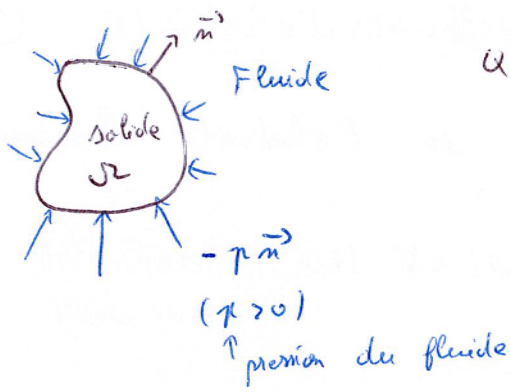 n⃗
Fluide
Q
solide
Ω
- p n⃗
(p > 0)
↑ pression du fluide